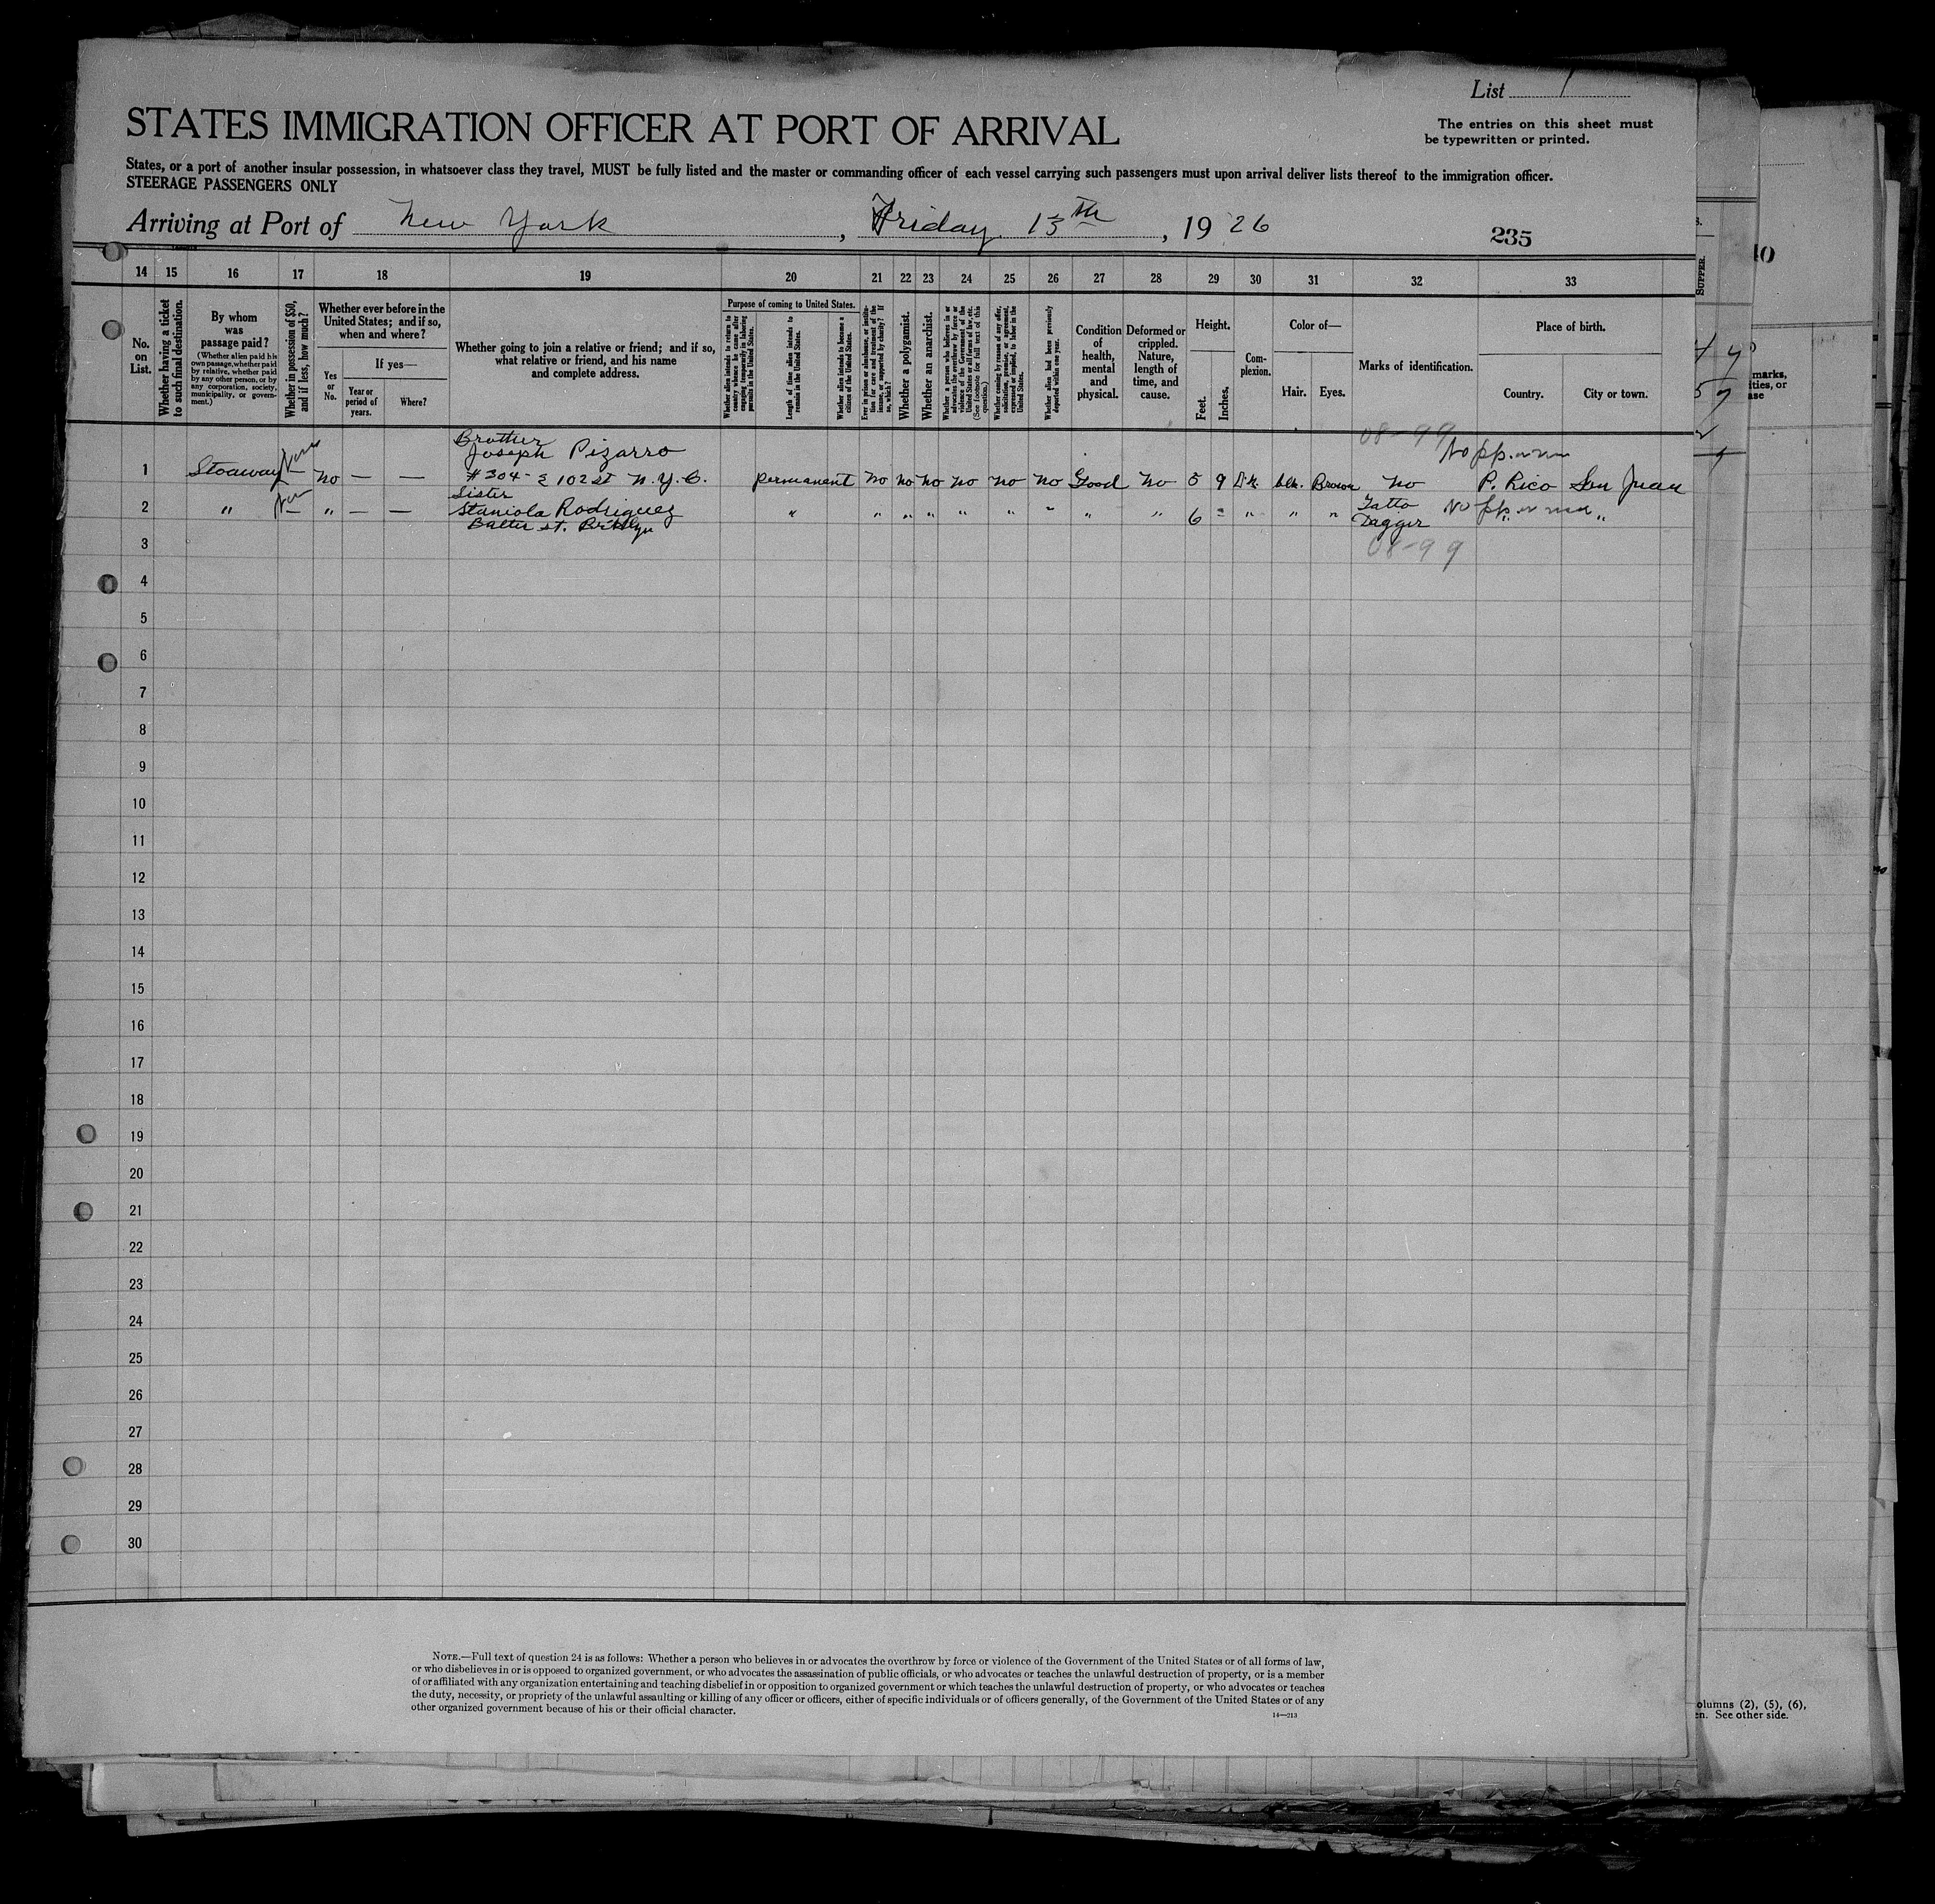 List 1
STATES IMMIGRATION OFFICER AT PORT OF ARRIVAL
The entries on this sheet must
be typewritten or printed.
States, or a port of another insular possession, in whatsoever class they travel, MUST be fully listed and the master or commanding officer of each vessel carrying such passengers must upon arrival deliver lists thereof to the immigration officer.
STEERAGE PASSENGERS ONLY
Arriving at Port of New York, Friday 13th, 1926
235
14 15 16 17 18 19 20 21 22 23 24 25 26 27 28 29 30 31 32 33
No. on List.
Whether having a ticket to such final destination.
By whom was passage paid?
(Whether alien paid his own passage, whether paid by relative, whether paid by any other person, or by any corporation, society, municipality, or government.)
Whether in possession of $50, and if less, how much?
Whether ever before in the United States; and if so, when and where?
Yes or No.
If yes—
Year or period of years.
Where?
Whether going to join a relative or friend; and if so, what relative or friend, and his name and complete address.
Purpose of coming to United States.
Whether alien intends to return to country whence he came after engaging temporarily in laboring pursuits in the United States.
Length of time alien intends to remain in the United States.
Whether alien intends to become a citizen of the United States.
Ever in prison or almshouse, or institution for care and treatment of the insane, or supported by charity? If so, which?
Whether a polygamist.
Whether an anarchist.
Whether a person who believes in or advocates the overthrow by force or violence of the Government of the United States or all forms of law, etc. (See footnote for full text of this question.)
Whether coming by reason of any offer, solicitation, promise, or agreement, expressed or implied, to labor in the United States.
Whether alien had been previously deported within one year.
Condition of health, mental and physical.
Deformed or crippled. Nature, length of time, and cause.
Height.
Feet. Inches.
Complexion.
Color of—
Hair. Eyes.
Marks of identification.
Place of birth.
Country. City or town.
08-99
Brother
Joseph Pizarro
1 Stoaway no — — #304- E 102 st N.Y.C. permanent no no no no no no Good no 5 9 Dk. blk. Brown no P. Rico San Juan
Sister
2 " " — — Staniola Rodriguez " " " " " " " " " 6 " " " " Tatto
Dagger
08-99
3
4
5
6
7
8
9
10
11
12
13
14
15
16
17
18
19
20
21
22
23
24
25
26
27
28
29
30
NOTE.—Full text of question 24 is as follows: Whether a person who believes in or advocates the overthrow by force or violence of the Government of the United States or of all forms of law,
or who disbelieves in or is opposed to organized government, or who advocates the assassination of public officials, or who advocates or teaches the unlawful destruction of property, or is a member
of or affiliated with any organization entertaining and teaching disbelief in or opposition to organized government or which teaches the unlawful destruction of property, or who advocates or teaches
the duty, necessity, or propriety of the unlawful assaulting or killing of any officer or officers, either of specific individuals or of officers generally, of the Government of the United States or of any
other organized government because of his or their official character.
14—213
SUPPER.
marks,
olumns (2), (5), (6),
en. See other side.